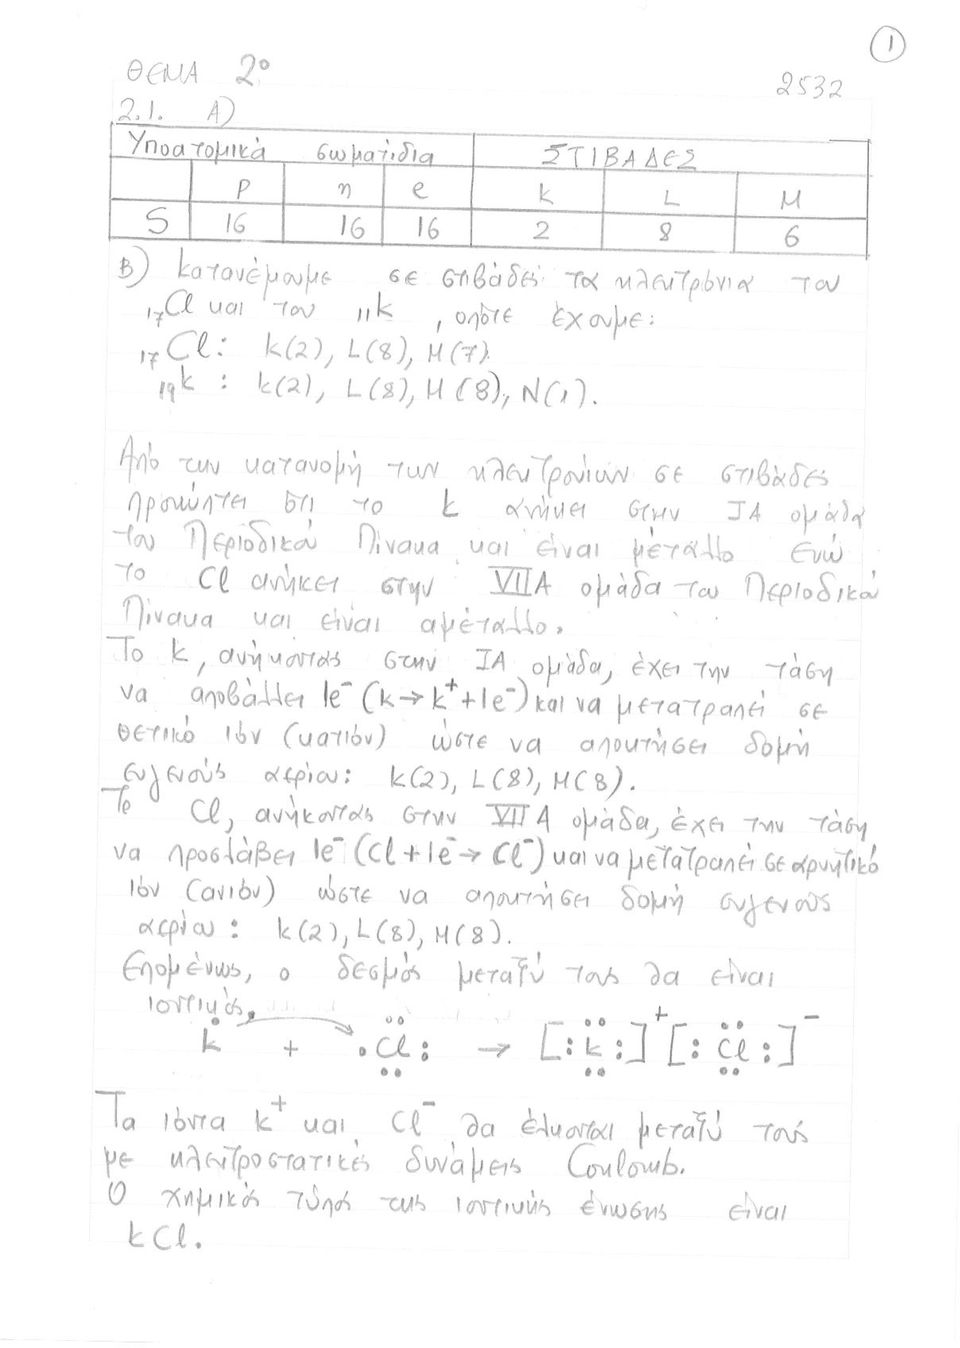 1
ΘΕΜΑ 2º
2532
2.1. Α)
Υποατομικά σωματίδια ΣΤΙΒΑΔΕΣ
P n e K L M
S 16 16 16 2 8 6
Β) Κατανέμουμε σε στιβάδες τα ηλεκτρόνια του
₁₇Cl και του ₁₁K, οπότε έχουμε:
₁₇Cl: K(2), L(8), M(7).
₁₉K : K(2), L(8), M(8), N(1).
Από την κατανομή των ηλεκτρονίων σε στιβάδες
προκύπτει ότι το K ανήκει στην IA ομάδα
του Περιοδικού Πίνακα και είναι μέταλλο ενώ
το Cl ανήκει στην VIIA ομάδα του Περιοδικού
Πίνακα και είναι αμέταλλο.
Το K, ανήκοντας στην IA ομάδα, έχει την τάση
να αποβάλλει 1e⁻ (K→K⁺+1e⁻) και να μετατραπεί σε
θετικό ιόν (κατιόν) ώστε να αποκτήσει δομή
ευγενούς αερίου: K(2), L(8), M(8).
Το Cl, ανήκοντας στην VIIA ομάδα, έχει την τάση
να προσλάβει 1e⁻ (Cl+1e⁻→Cl⁻) και να μετατραπεί σε αρνητικό
ιόν (ανιόν) ώστε να αποκτήσει δομή ευγενούς
αερίου: K(2), L(8), M(8).
Επομένως, ο δεσμός μεταξύ τους θα είναι
ιοντικός.
K + Cl: → [:K:]⁺[:Cl:]⁻
Τα ιόντα K⁺ και Cl⁻ θα έλκονται μεταξύ τους
με ηλεκτροστατικές δυνάμεις Coulomb.
Ο χημικός τύπος της ιοντικής ένωσης είναι
KCl.